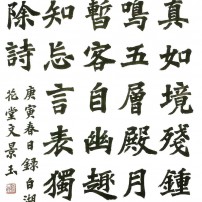 真如境殘鍾
鳴五層殿月
暫客自幽趣
知忘言表獨
除詩
庚寅春日錄白湖
花堂文景玉